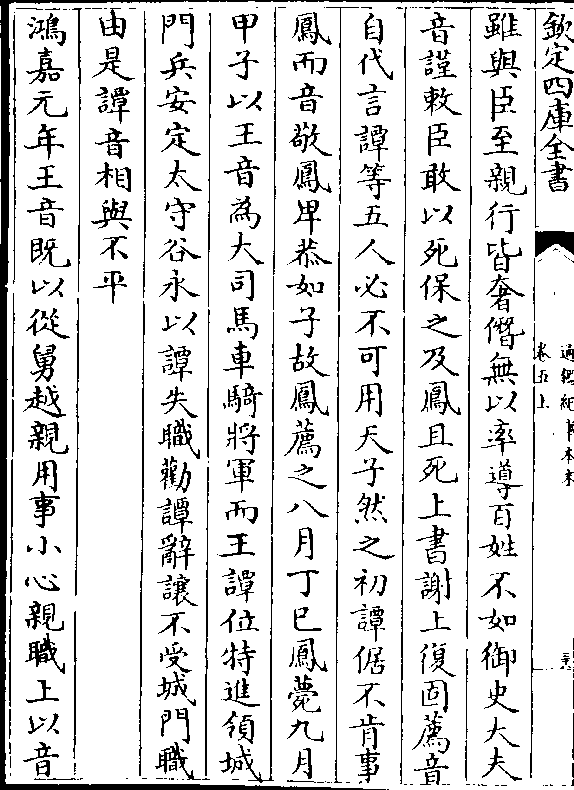 欽定四庫全書
通鑑紀事本末
卷五上
雖與臣至親行皆奢僭無以率導百姓不如御史大夫
音謹敕臣敢以死保之及鳳且死上書謝上復固薦音
自代言譚等五人必不可用天子然之初譚倨不肯事
鳳而音敬鳳卑恭如子故鳳薦之八月丁巳鳳薨九月
甲子以王音為大司馬車騎將軍而王譚位特進領城
門兵安定太守谷永以譚失職勸譚辭讓不受城門職
由是譚音相與不平
鴻嘉元年王音既以從舅越親用事小心親職上以音